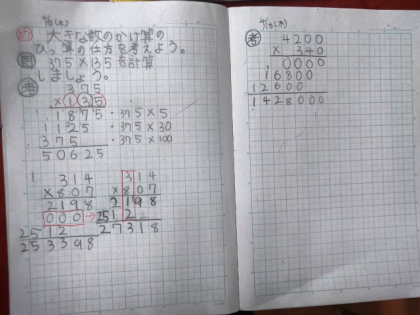 9/17(火)
め 大きな数のかけ算の
ひっ算の仕方を考えよう。
問 375×135を計算
しましょう。
考 375
×135
1875・375×5
1125・375×30
375・375×100
50625
314
×807
2198
000
2512
253398
314
×807
2198
2512
27318
考 4200
× 340
0000
16800
12600
1428000